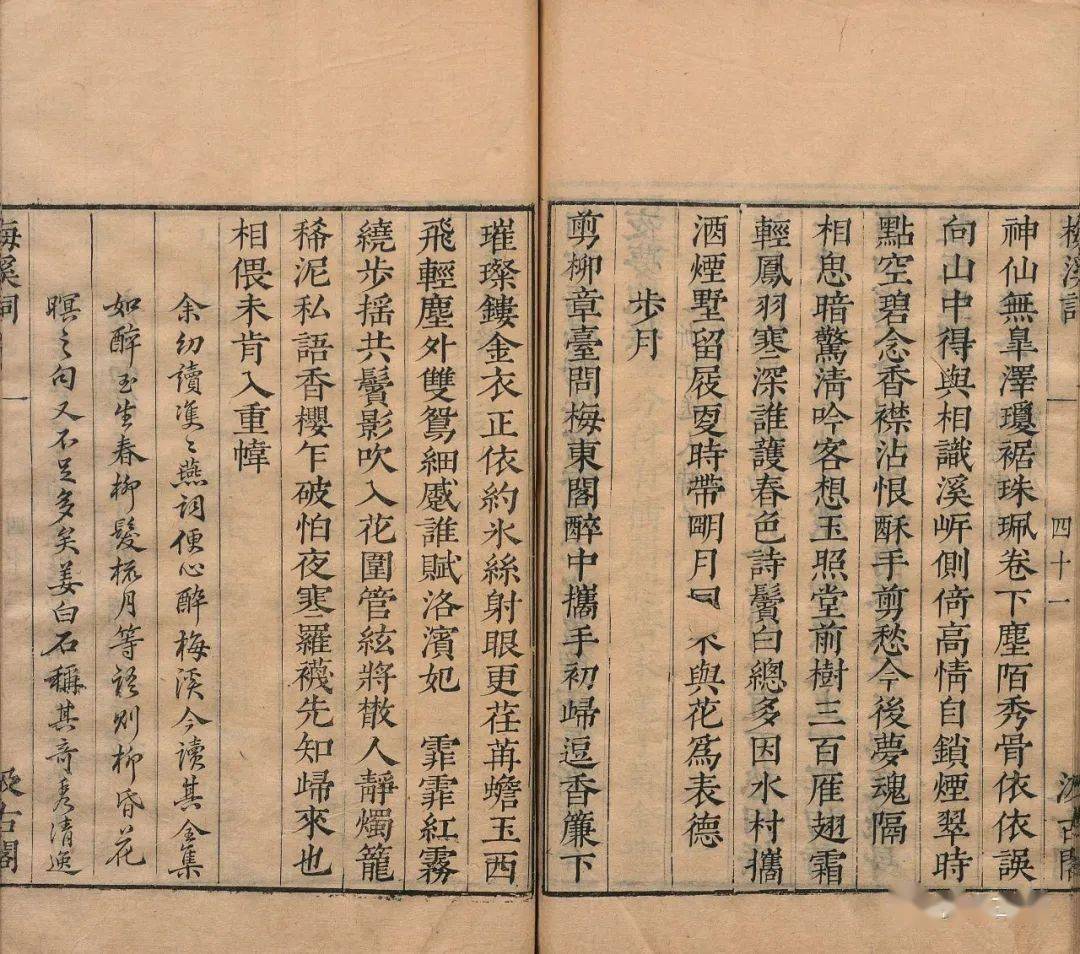 梅溪詞 四十一 汲古閣
神仙無皐澤瓊裾珠珮卷下塵陌秀骨依依誤
向山中得與相識溪岍側倚高情自鎖煙翠時
點空碧念香襟沾恨酥手剪愁今後夢魂隔
相思暗驚淸吟客想玉照堂前樹三百雁翅霜
輕鳳羽寒深誰護春色詩鬢白總多因水村攜
酒煙墅留屐更時帶明月 不與花爲表德
步月
剪柳章臺問梅東閣醉中攜手初歸逗香簾下
璀璨鏤金衣正依約氷絲射眼更荏苒蟾玉西
飛輕塵外雙鴛細蹙誰賦洛濱妃 霏霏紅霧
繞步搖共鬢影吹入花圍管絃將散人靜燭籠
稀泥私語香櫻乍破怕夜寒羅襪先知歸來也
相偎未肯入重幃
余幼讀雙〻燕詞便心醉梅溪今讀其全集
如醉玉生春柳髮梳月等語則柳昏花
暝之句又不足多矣姜白石稱其奇秀清逸
梅溪詞 汲古閣